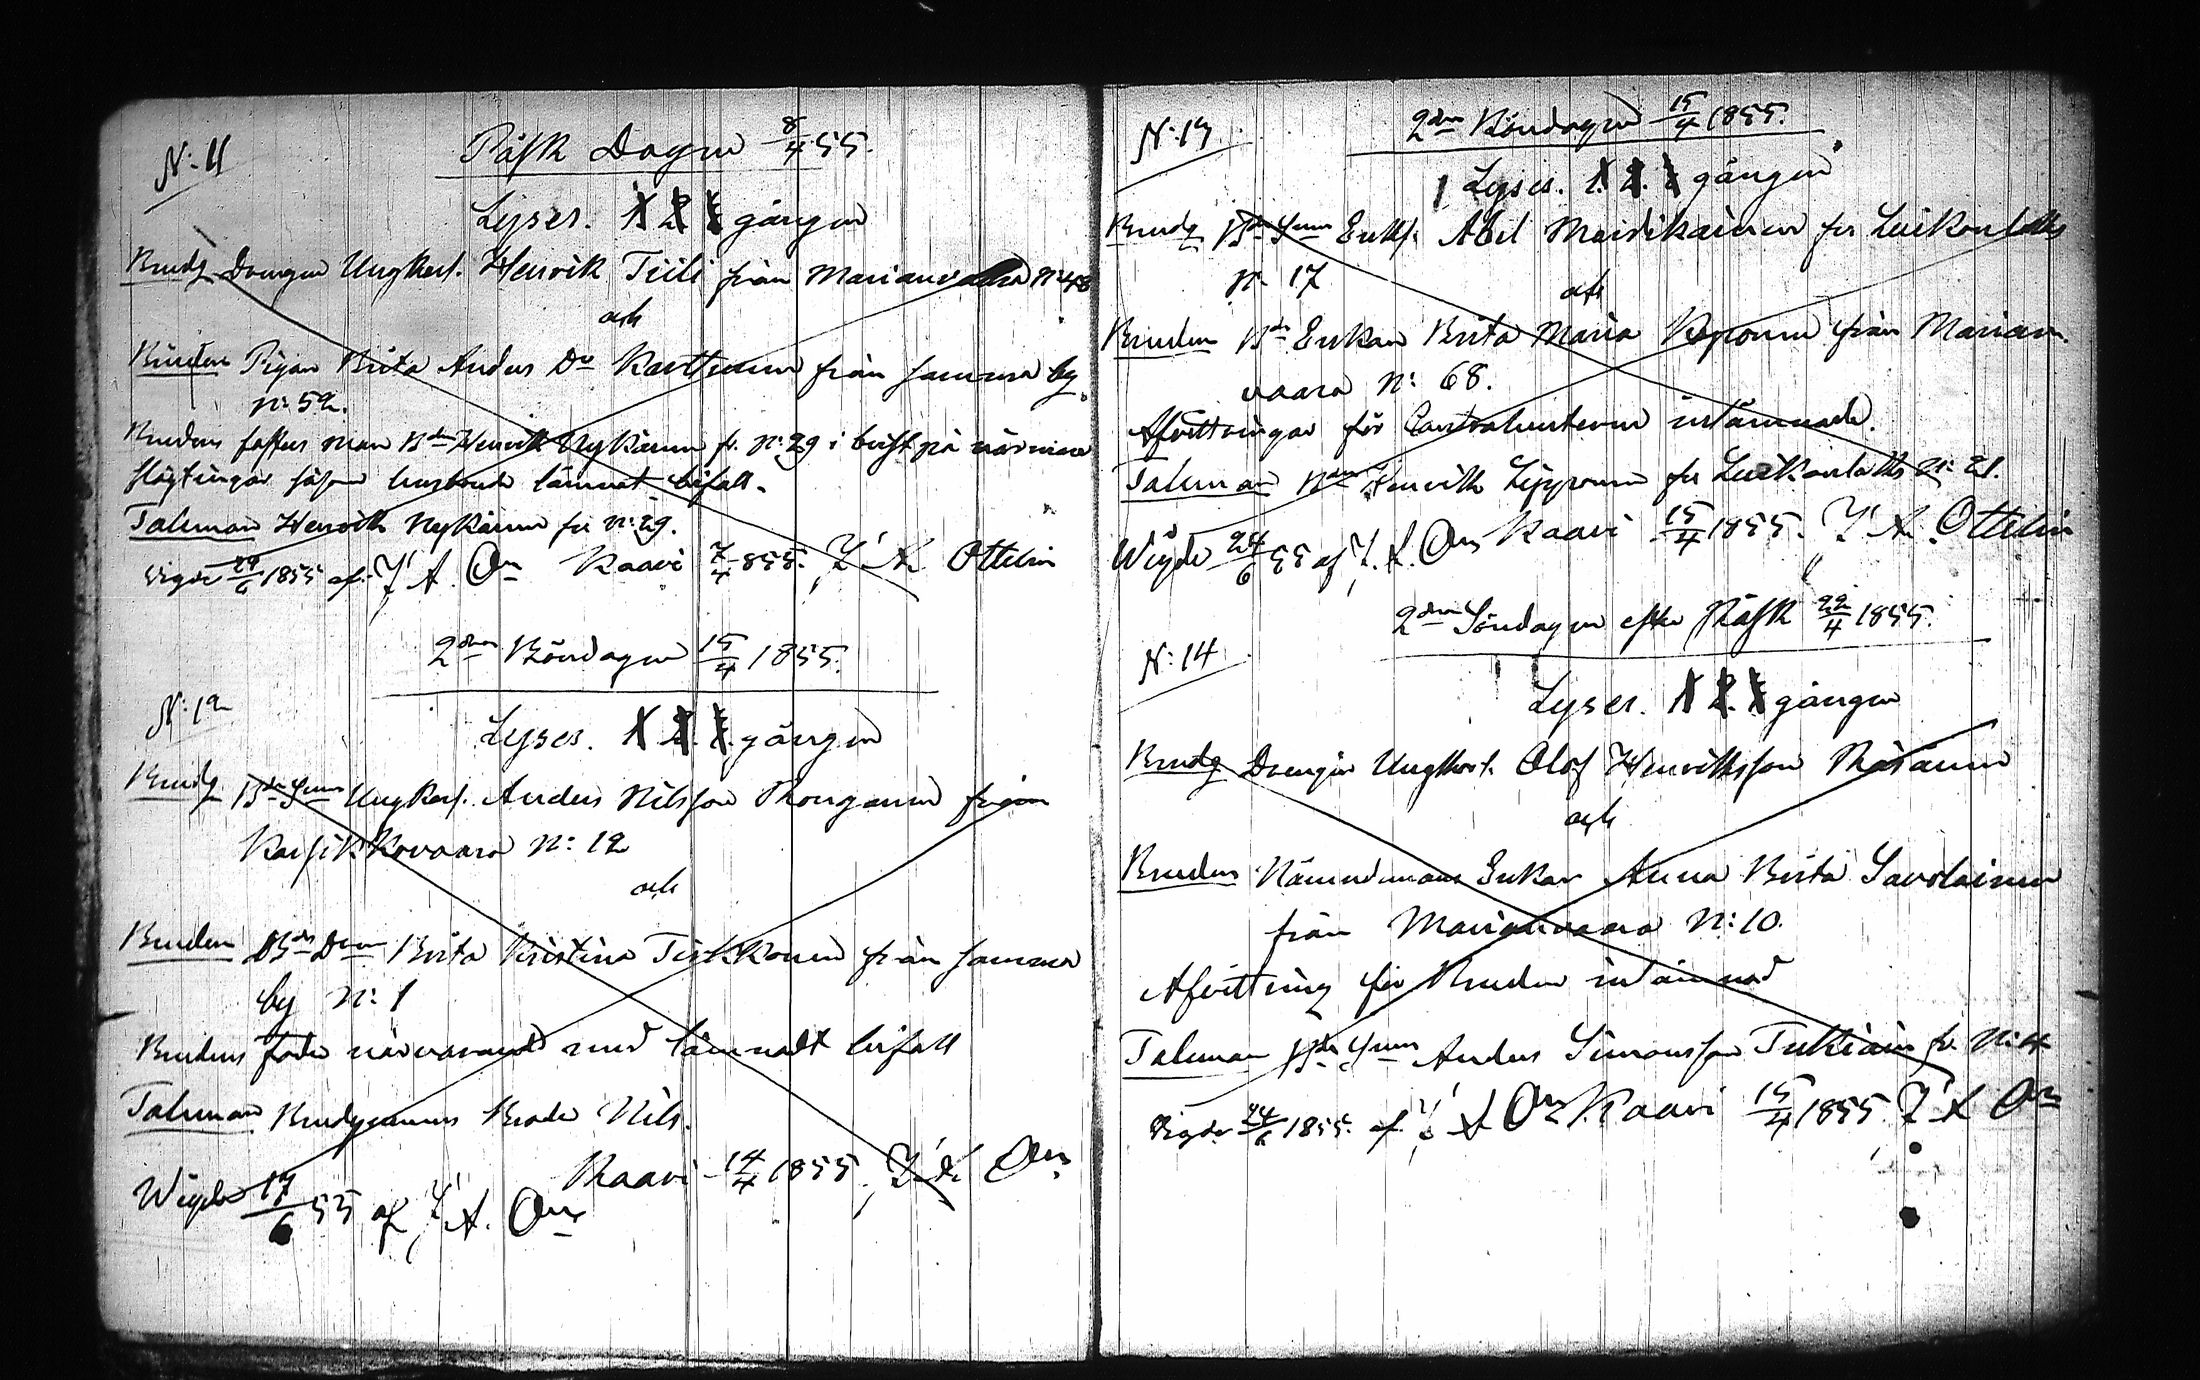 N: 11
Påsk Dagen 8/4 55.
Lyses. 1 2 3 gången
Brudg Drengen Ungkarl. Henrik Tiili från Marianvaara N: 48
och
Bruden Pigan Brita Anders Dr Karttunen från samma by
N: 52.
Brudens fasters man Bdn Henrik Nykänen fr. N: 29 i brist på närmare
slägtingar såsom husbonde lämnat bifall.
Talman Henrik Nykänen fr N: 29.
Vigde 24/6 1855 af J. A. On Kaavi 7/4 855. J A Ottelin
2dra Böndagen 15/4 1855.
N: 12
Lyses. 1 2. 3. gången
Brudg Bde Sonen Ungkarl. Anders Nilsson Konganen från
Karsikkovaara N: 12
och
Bruden Bds Dren Brita Kristina Tirkkonen från samma
by N: 1
Brudens fader närvarande med lämnadt bifall
Talman Brudgummens Broder Nils.
Kaavi 14/4 1855. J A On
Wigde 17/6 55 af J A. On
N: 13
2dra Böndagen 15/4 1855.
Lyses. 1. 2. 3 gången
Brudg Bde Sonen Enkl. Abel Meirikäinen fr Luikonlaks
N: 17
och
Bruden Bde Enkan Brita Maria Reponen från Marian
vaara N: 68.
Afvittringar för Contrahenterne inlämnade.
Talman Bden Henrik Lipponen fr Luikonlaks N: 21.
Wigde 24/6 55 af J. A. On Kaavi 15/4 1855. J A. Ottelin
2dra Söndagen efter Påsk 22/4 1855.
N: 14
Lyses. 1 2. 3 gången
Brudg Drengen Ungkarl. Olof Henriksson Räsänen
och
Bruden Nämndemans Enkan Anna Brita Savolainen
från Marianvaara N: 10.
Afvittring för Bruden inlämnad
Talman Bde Sonen Anders Simonsson Tukiain fr. N: 4
Vigde 24/6 1855. af J A On Kaavi 15/4 1855 J A On